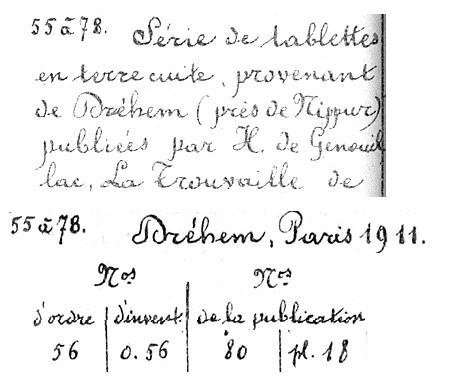 55 à 78. Série de tablettes
en terre cuite, provenant
de Dréhem (près de Nippur)
publiées par H. de Genouil
lac, La Trouvaille de
55 à 78. Dréhem, Paris 1911.
Nos Nos
d'ordre d'invent. de la publication
56 0.56 80 pl. 18